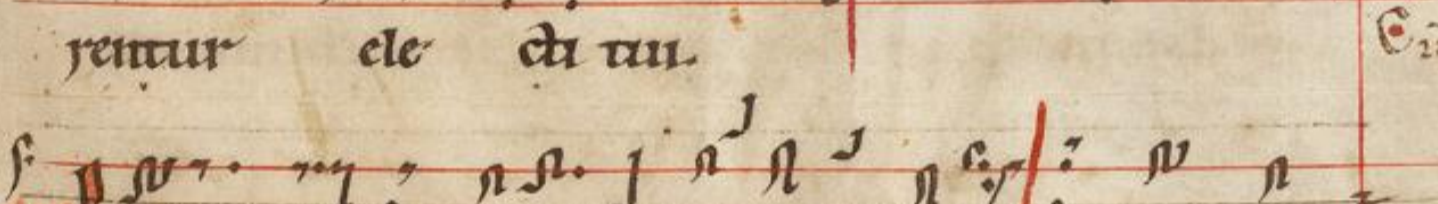 rentur ele cti tui.